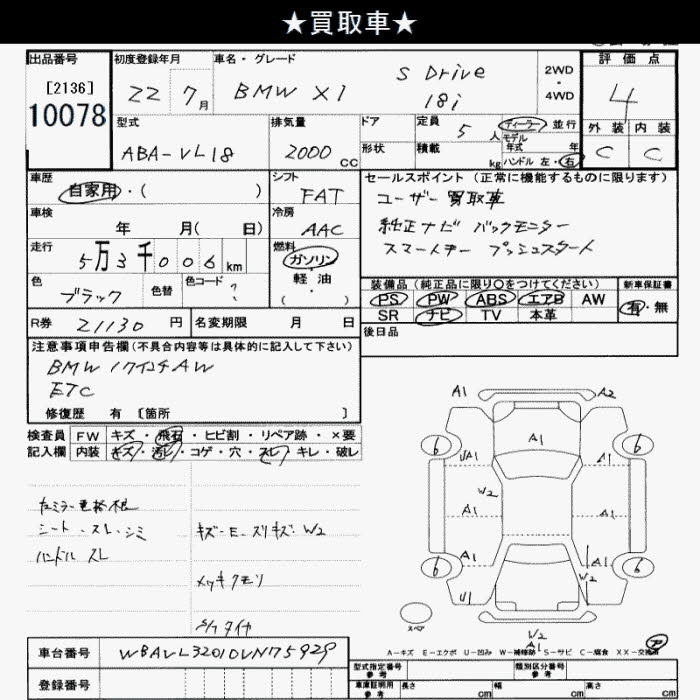 ★買取車★
出品番号 初度登録年月 車名・グレード 評価点
[2136] 10078 22 7月 BMW X1 S Drive 18i 2WD・4WD 4
型式 排気量 ドア 定員 5人 ディーラー 並行 外装 内装
ABA-VL18 2000cc 形状 積載 kg モデル年式 年 ハンドル 左・右 C C
車歴 シフト セールスポイント (正常に機能するものに限ります)
自家用・( ) FAT ユーザー買取車
車検 冷房 純正ナビ バックモニター
年 月( 日) AAC スマートキー プッシュスタート
走行 燃料
5万3千006km ガソリン・軽油・( )
色 色替 色コード 装備品 (純正品に限り○をつけてください) 新車保証書
ブラック ? PS PW ABS エアB AW 有・無
SR ナビ TV 本革
R券 21130円 名変期限 月 日 後日品
注意事項申告欄 (不具合内容等は具体的に記入して下さい)
BMW 17インチAW
ETC
修復歴 有 [箇所 ]
検査員 FW キズ・飛石・ヒビ割・リペア跡・×要
記入欄 内装 キズ・汚レ・コゲ・穴・スレ・キレ・破レ
シート・スレ・シミ キズ・E・スリキズ・W2
ハンドル スレ
メッキクモリ
A1 A2
A1
6 6
A1 A1
W2
A1 A1
A1 A1
6 6
W2
U1 A1
スペア
W2
A1
A-キズ E-エクボ U-凹み W-補修跡 S-サビ C-腐食 XX-交換済
車台番号 WBAVL32010VN75929
登録番号
型式指定番号 参考 類別区分番号 参考
車庫証明用 参考 長さ cm 幅 cm 高さ cm